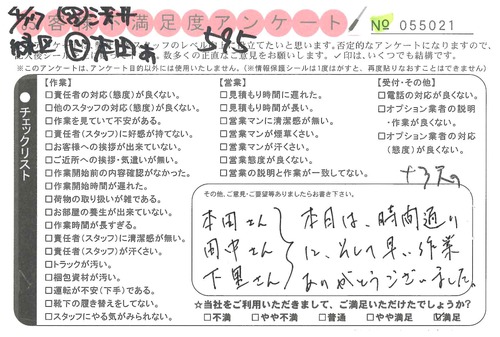 お客様満足度アンケート
№ 055021
595
※このアンケートは、アンケート目的以外には使用いたしません。(※情報保護シールは1度はがすと、再度貼りなおすことはできません)
チェックリスト
【作業】
□責任者の対応(態度)が良くない。
□他のスタッフの対応(態度)が良くない。
□作業を見ていて不安がある。
□責任者(スタッフ)に好感が持てない。
□お客様への挨拶が出来ていない。
□ご近所への挨拶・気遣いが無い。
□作業開始前の内容確認がなかった。
□作業開始時間が遅れた。
□荷物の取り扱いが雑である。
□お部屋の養生が出来ていない。
□作業時間が長すぎる。
□責任者(スタッフ)に清潔感が無い。
□責任者(スタッフ)が汗くさい。
□トラックが汚い。
□梱包資材が汚い。
□運転が不安(下手)である。
□靴下の履き替えをしてない。
□スタッフにやる気がみられない。
【営業】
□見積もり時間に遅れた。
□見積もり時間が長い。
□営業マンに清潔感が無い。
□営業マンが煙草くさい。
□営業マンが汗くさい。
□営業態度が良くない。
□営業の説明と作業が一致してない。
【受付・その他】
□電話の対応が良くない。
□オプション業者の説明
・作業が良くない。
□オプション業者の対応
(態度)が良くない。
その他、ご意見・ご要望等ありましたらお書き下さい。
本田さん
田中さん
下里さん
本日は、時間通り
に、そして早い作業
ありがとうございました。
☆当社をご利用いただきまして、ご満足いただけたでしょうか?
□不満 □やや不満 □普通 □やや満足 ☑満足